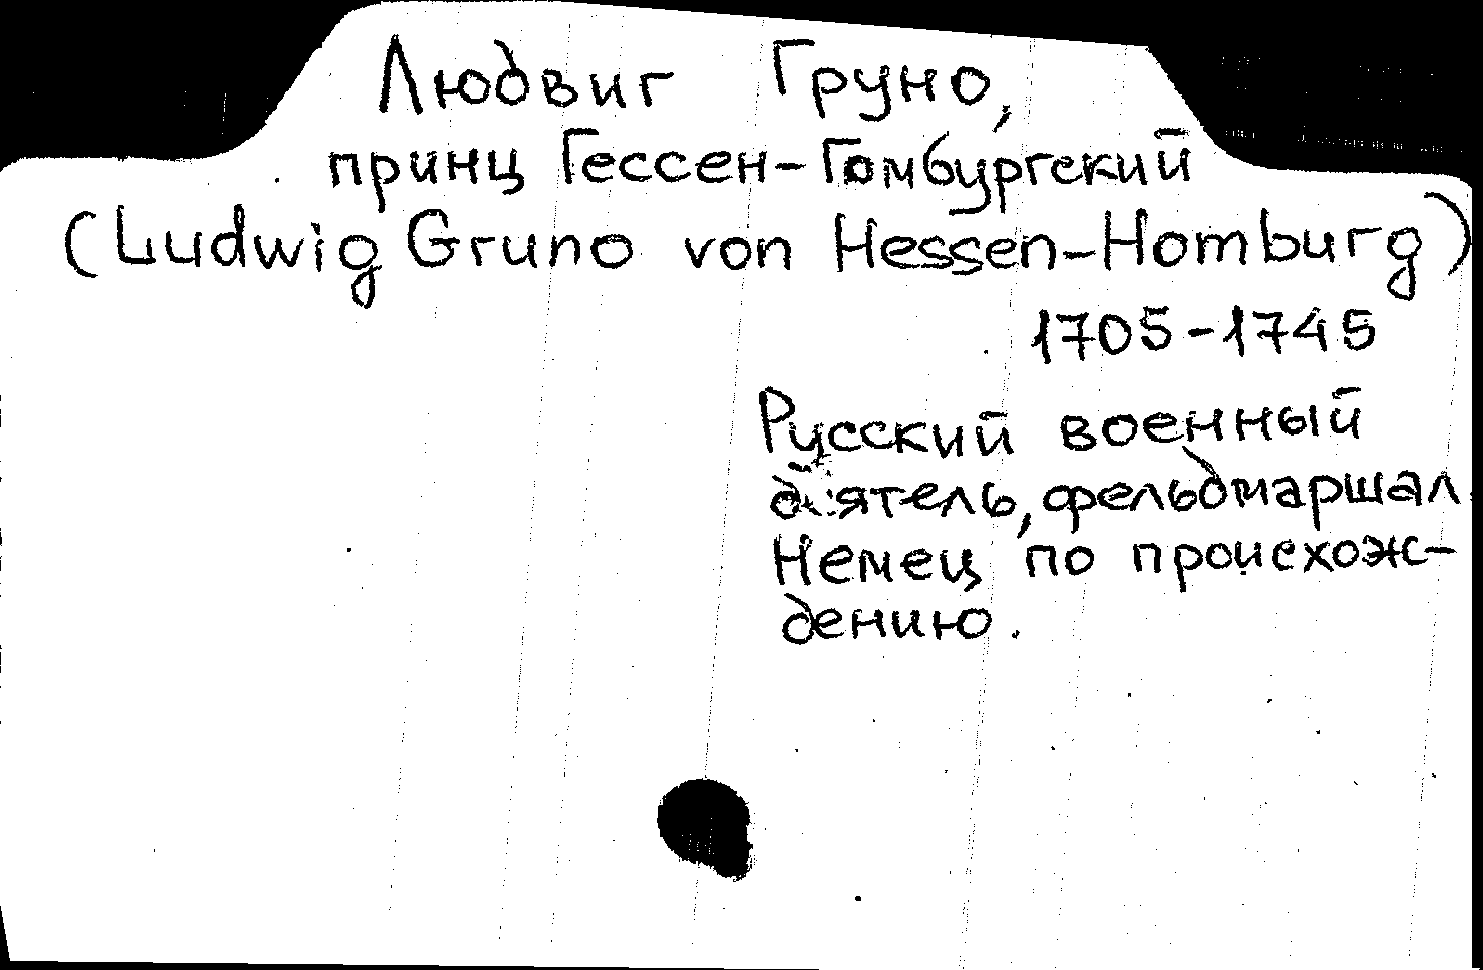 Людвиг Груно,
принц Гессен-Гомбургский
(Ludwig Gruno von Hessen-Homburg)
1705-1745
Русский военный
деятель, фельдмаршал.
Немец по происхож-
дению.